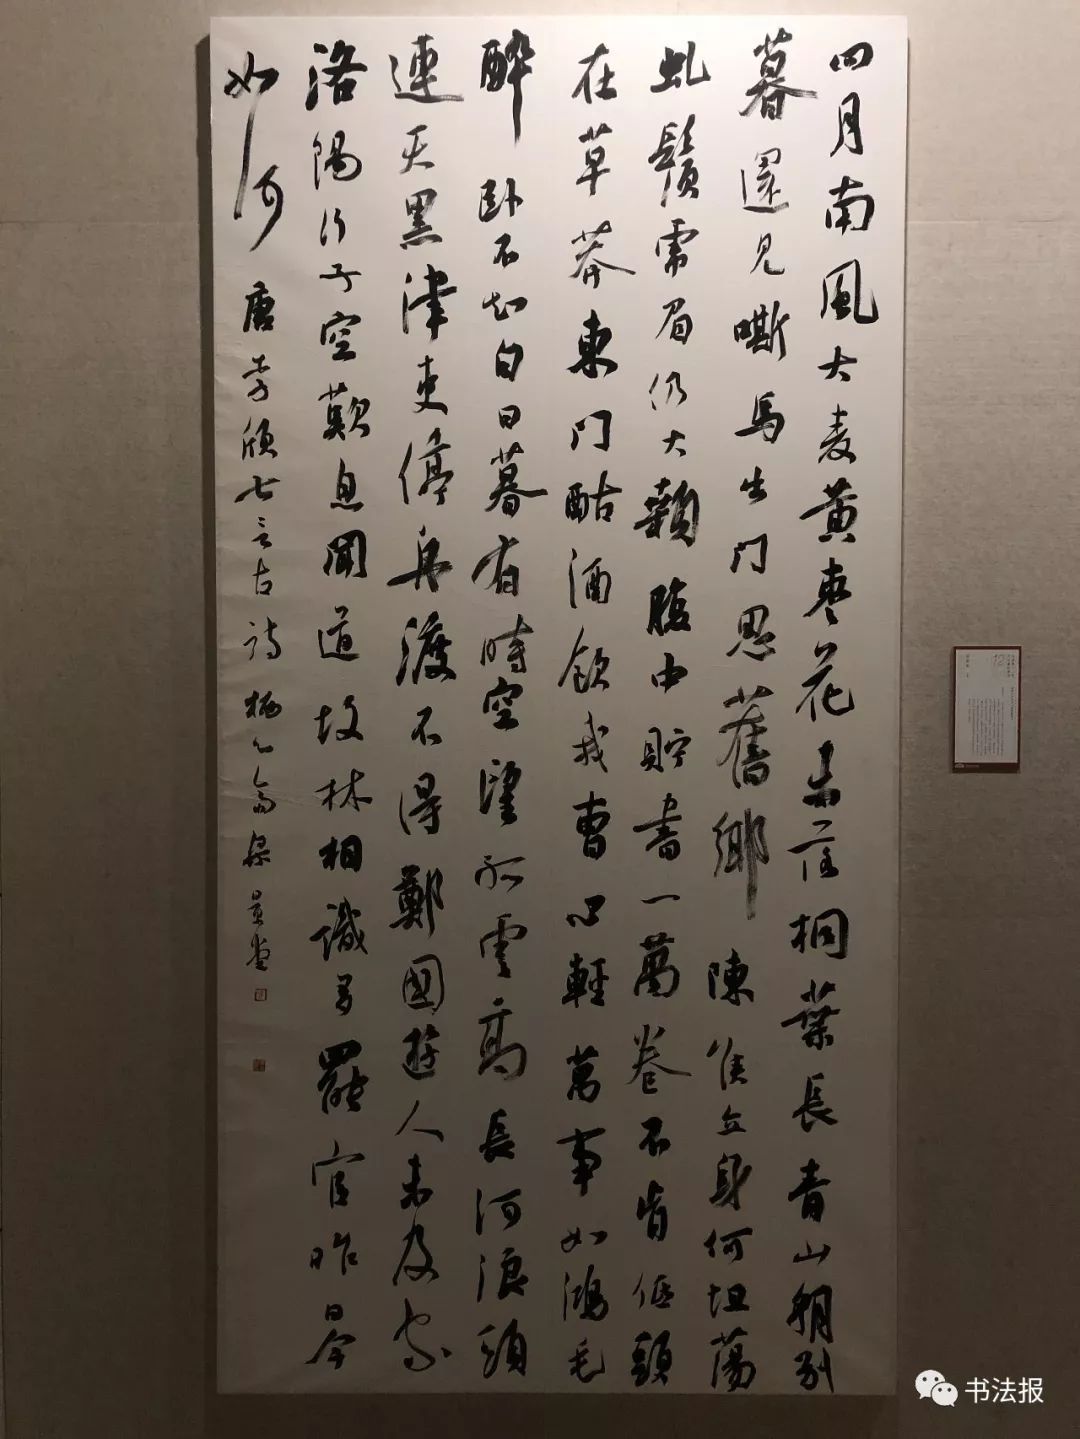 四月南風大麦黄枣花未落桐葉長青山朝别
暮還見嘶馬出門思舊鄉陳侯立身何坦蕩
虬鬚虎眉仍大顙腹中貯書一萬卷不肯低頭
在草莽東門酤酒飲我曹心輕萬事如鴻毛
醉卧不知白日暮有時空望孤雲高長河浪頭
連天黑津吏停舟渡不得鄭國遊人未及家
洛陽行子空歎息聞道故林相識多罷官昨日今
如何 唐李頎七言古詩
书法报